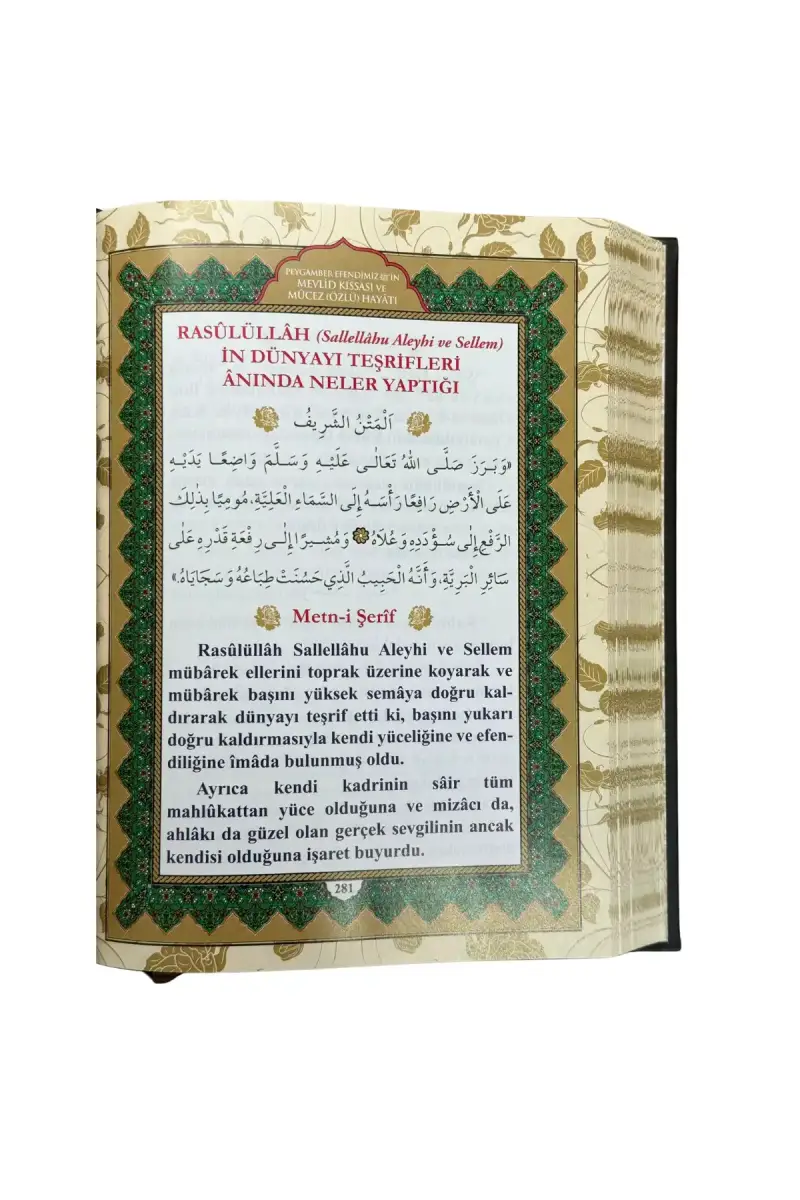 PEYGAMBER EFENDİMİZ ﷺ'İN
MEVLİD KISSASI VE
MÛCEZ (ÖZLÜ) HAYÂTI
RASÛLÜLLÂH (Sallellâhu Aleyhi ve Sellem)
İN DÜNYAYI TEŞRİFLERİ
ÂNINDA NELER YAPTIĞI
اَلْمَتْنُ الشَّرِيفُ
«وَبَرَزَ صَلَّى اللهُ تَعَالٰى عَلَيْهِ وَسَلَّمَ وَاضِعًا يَدَيْهِ
عَلَى الْأَرْضِ رَافِعًا رَأْسَهُ إِلَى السَّمَاءِ الْعَلِيَّةِ، مُومِيًا بِذٰلِكَ
الرَّفْعِ إِلٰى سُؤْدَدِهِ وَعُلَاهُ وَمُشِيرًا إِلٰى رِفْعَةِ قَدْرِهِ عَلٰى
سَائِرِ الْبَرِيَّةِ، وَأَنَّهُ الْحَبِيبُ الَّذِي حَسُنَتْ طِبَاعُهُ وَسَجَايَاهُ.»
Metn-i Şerîf
Rasûlüllâh Sallellâhu Aleyhi ve Sellem
mübârek ellerini toprak üzerine koyarak ve
mübârek başını yüksek semâya doğru kal-
dırarak dünyayı teşrif etti ki, başını yukarı
doğru kaldırmasıyla kendi yüceliğine ve efen-
diliğine îmâda bulunmuş oldu.
Ayrıca kendi kadrinin sâir tüm
mahlûkattan yüce olduğuna ve mizâcı da,
ahlâkı da güzel olan gerçek sevgilinin ancak
kendisi olduğuna işaret buyurdu.
281